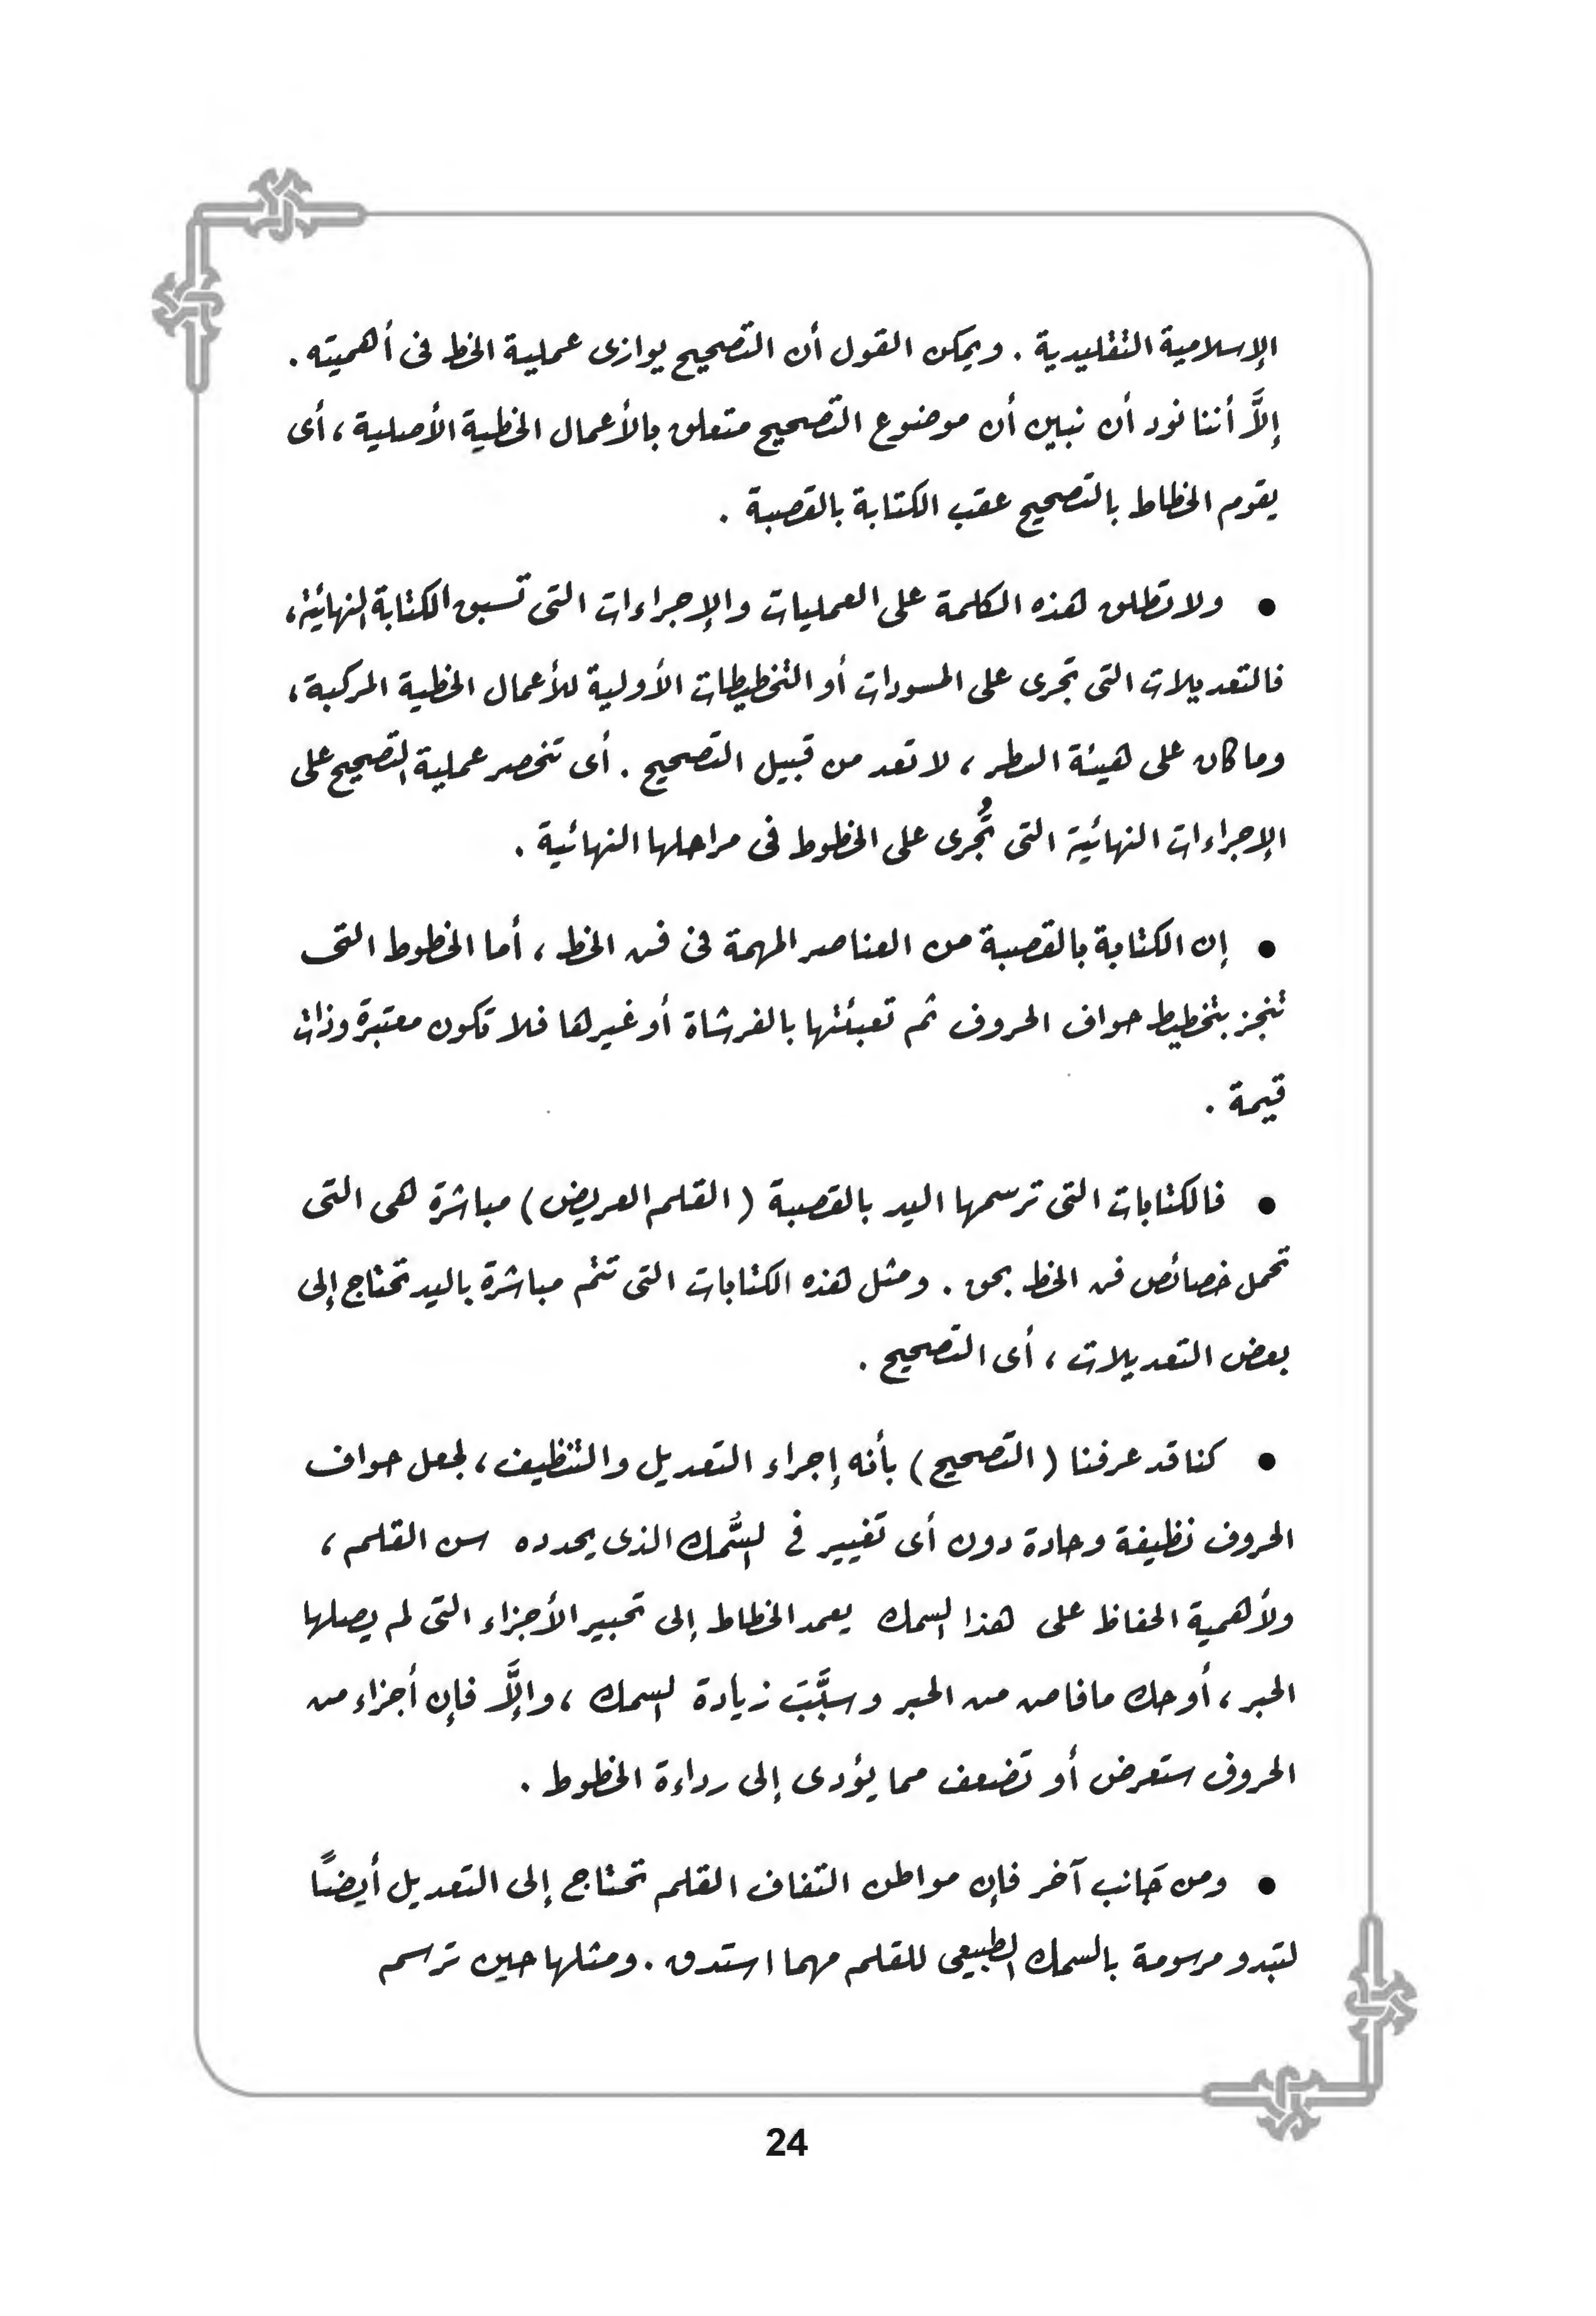 الإسلامية التقليدية . ويمكن القول أن التصحيح يوازى عملية الخط فى أهميته .
إلاَّ أننا نود أن نبين أن موضوع التصحيح متعلق بالأعمال الخطية الأصلية ، أى
يقوم الخطاط بالتصحيح عقب الكتابة بالقصبة .
● ولا تطلق هذه الكلمة على العمليات والإجراءات التى تسبق الكتابة النهائية ،
فالتعديلات التى تجرى على المسودات أو التخطيطات الأولية للأعمال الخطية المركبة ،
وما كان على هيئة السطر ، لا تعد من قبيل التصحيح . أى تنحصر عملية التصحيح على
الإجراءات النهائية التى تُجرى على الخطوط فى مراحلها النهائية .
● إن الكتابة بالقصبة من العناصر المهمة فى فن الخط ، أما الخطوط التى
تنجز بتخطيط حواف الحروف ثم تعبئتها بالفرشاة أو غيرها فلا تكون معتبرة وذات
قيمة .
● فالكتابات التى ترسمها اليد بالقصبة ( القلم العريض ) مباشرة هى التى
تحمل خصائص فن الخط بحق . ومثل هذه الكتابات التى تتم مباشرة باليد تحتاج إلى
بعض التعديلات ، أى التصحيح .
● كنا قد عرفنا ( التصحيح ) بأنه إجراء التعديل والتنظيف ، لجعل حواف
الحروف نظيفة وحادة دون أى تغيير في السُّمك الذى يحدده سن القلم ،
ولأهمية الحفاظ على هذا السمك يعمد الخطاط إلى تحبير الأجزاء التى لم يصلها
الحبر ، أو حك ما فاض من الحبر وسبَّبَ زيادة السمك ، وإلاَّ فإن أجزاء من
الحروف ستعرض أو تضعف مما يؤدى إلى رداءة الخطوط .
● ومن جَانب آخر فإن مواطن التفاف القلم تحتاج إلى التعديل أيضًا
لتبدو مرسومة بالسمك الطبيعى للقلم مهما استدق . ومثلها حين ترسم
24